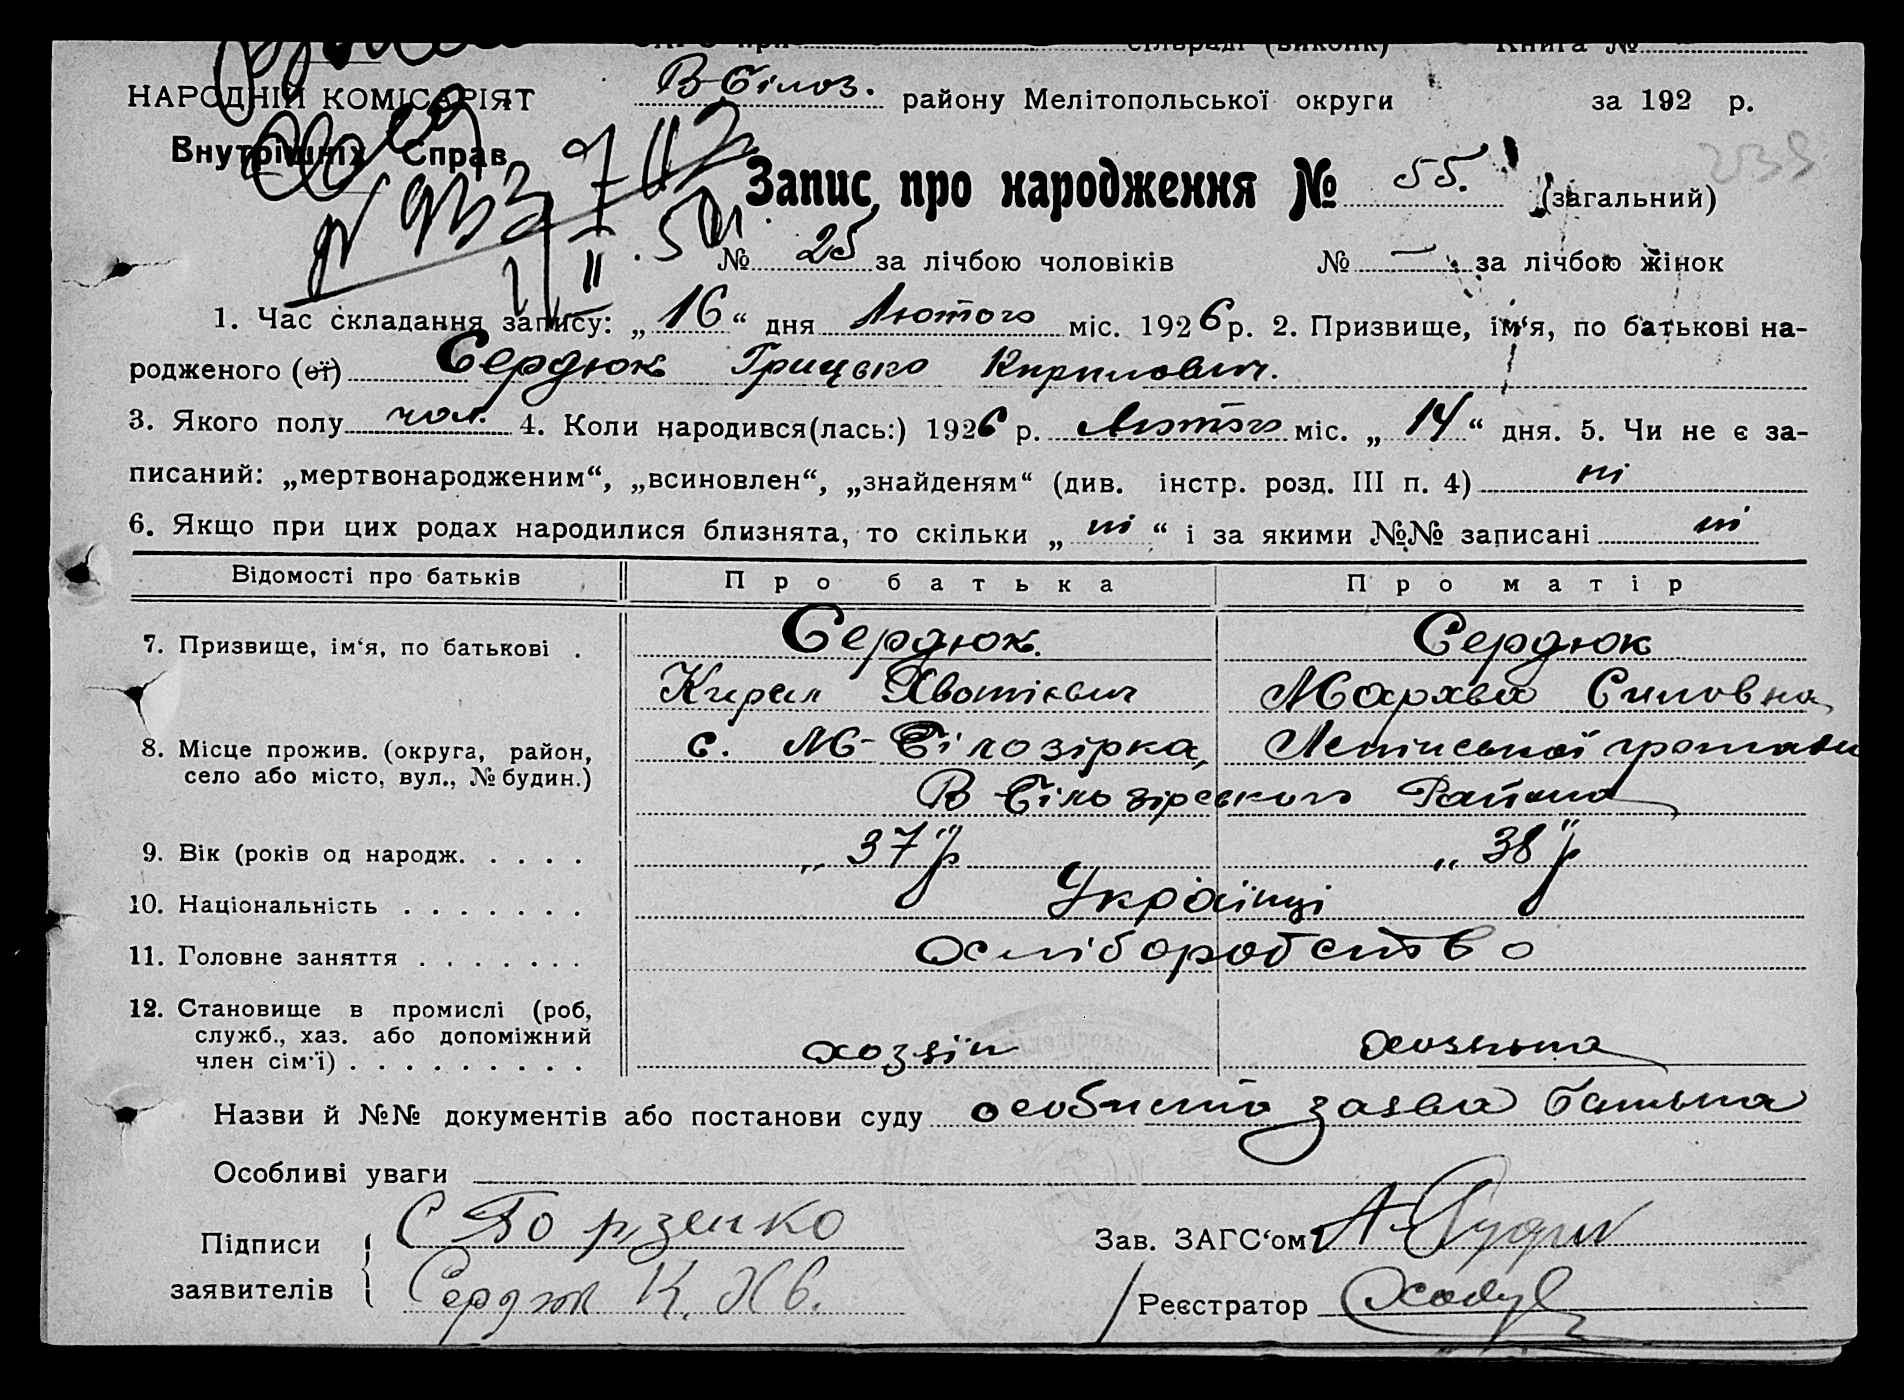 сільраді (виконк) Книга №
НАРОДНІЙ КОМІСАРІЯТ В-Білоз. району Мелітопольської округи за 192 р.
Внутрішніх Справ
Запис про народження № 55. (загальний)
№ 25 за лічбою чоловіків № — за лічбою жінок
1. Час складання запису: „16“ дня Лютого міс. 1926 р. 2. Призвище, ім‘я, по батькові на-
родженого (ої) Сердюк Грицько Кирилович.
3. Якого полу чол. 4. Коли народився(лась:) 1926 р. Лютого міс. „14“ дня. 5. Чи не є за-
писаний: „мертвонародженим“, „всиновлен“, „знайденям“ (див. інстр. розд. III п. 4) ні
6. Якщо при цих родах народилися близнята, то скільки „ні“ і за якими №№ записані ні
Відомості про батьків Про батька Про матір
7. Призвище, ім‘я, по батькові . Сердюк. Сердюк
Кирил Хвотієвич Мархва Силовна
8. Місце прожив. (округа, район, с. М-Білозірка, Ленінської громади
село або місто, вул., № будин.) В Білозірського Района
9. Вік (років од народж. . . . . „37“ р „38“ р
10. Національність . . . . . . . Українці
11. Головне заняття . . . . . . . хліборобство
12. Становище в промислі (роб,
служб., хаз. або допоміжний хозяїн хозяйка
член сім‘ї) . . . . . . . . .
Назви й №№ документів або постанови суду особиста заява батька
Особливі уваги
Підписи Зав. ЗАГС‘ом
заявителів Сердюк К. Хв. Реєстратор